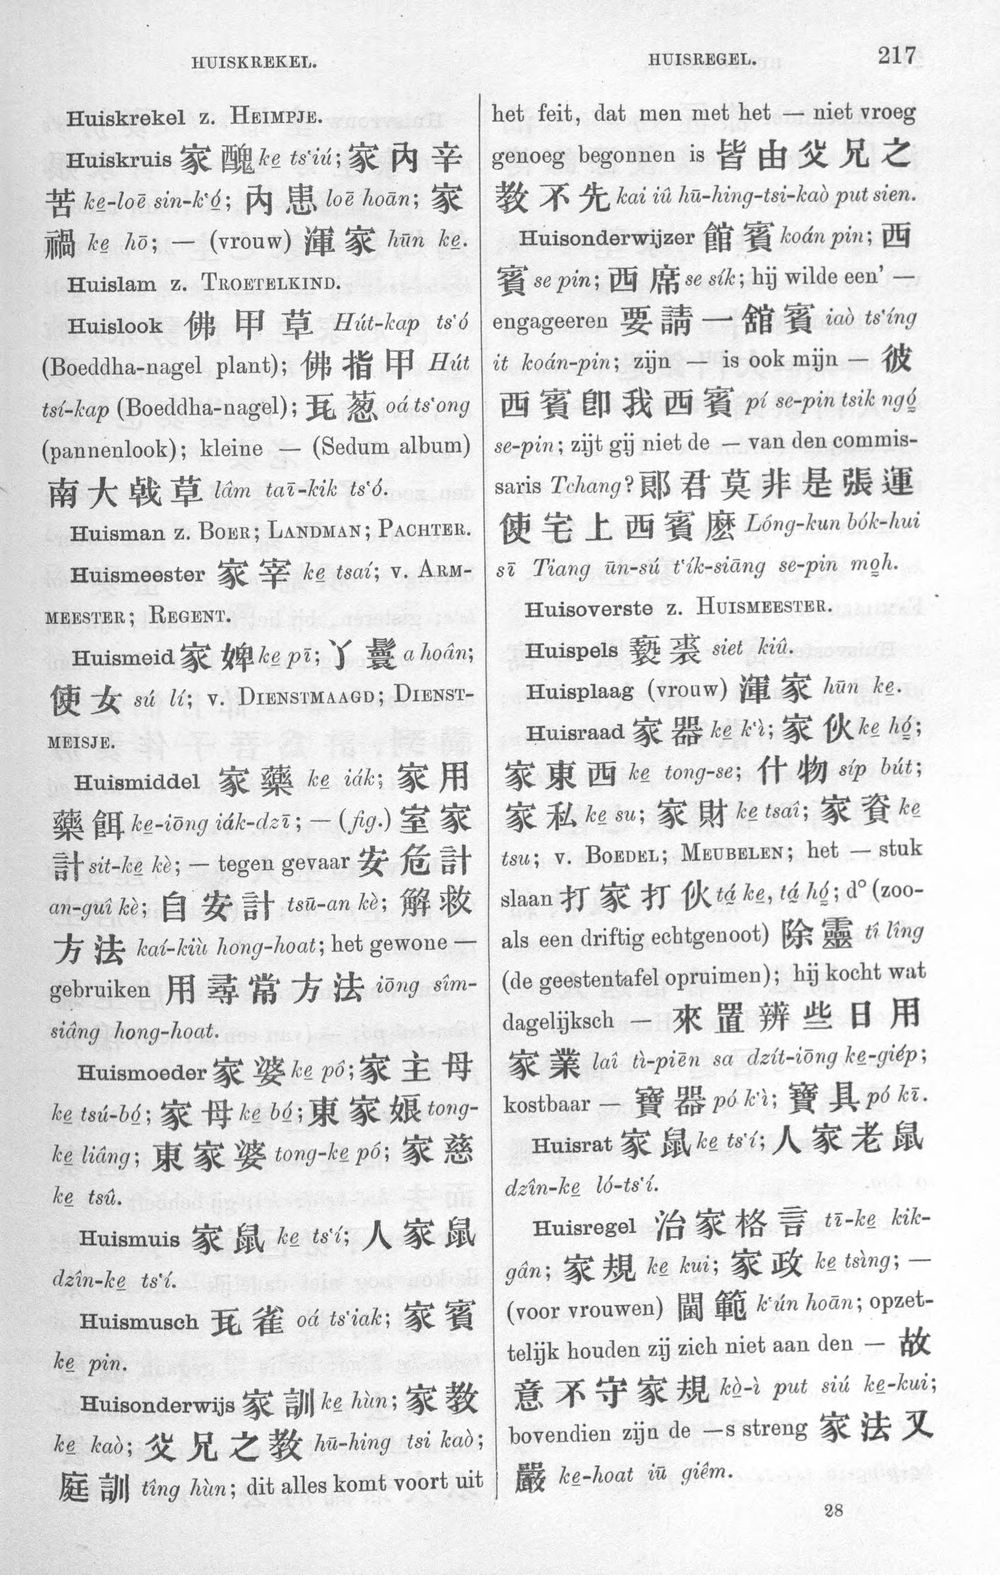 HUISKREKEL.
HUISREGEL.
217
Huiskrekel z. HEIMPJE.
Huiskruis 家醜 ke̱ tsʽiú; 家內辛
苦 ke̱-loē sin-kʽó̱; 內患 loē hoān; 家
禍 ke̱ hō; — (vrouw) 渾家 hūn ke̱.
Huislam z. TROETELKIND.
Huislook 佛甲草 Hút-kap tsʽó
(Boeddha-nagel plant); 佛指甲 Hút
tsí-kap (Boeddha-nagel); 瓦葱 oá tsʽong
(pannenlook); kleine — (Sedum album)
南大戟草 lâm taī-kik tsʽó.
Huisman z. BOER; LANDMAN; PACHTER.
Huismeester 家宰 ke̱ tsaí; v. ARM-
MEESTER; REGENT.
Huismeid 家婢 ke̱ pī; 丫鬟 a hoân;
使女 sú lí; v. DIENSTMAAGD; DIENST-
MEISJE.
Huismiddel 家藥 ke̱ iák; 家用
藥餌 ke̱-iōng iák-dzī; — (fig.) 室家
計 sit-ke̱ kè; — tegen gevaar 安危計
an-guî kè; 自安計 tsū-an kè; 解救
方法 kaí-kiù hong-hoat; het gewone —
gebruiken 用尋常方法 iōng sîm-
siâng hong-hoat.
Huismoeder 家婆 ke̱ pô; 家主母
ke̱ tsú-bó̱; 家母 ke̱ bó̱; 東家娘 tong-
ke̱ liâng; 東家婆 tong-ke̱ pó; 家慈
ke̱ tsû.
Huismuis 家鼠 ke̱ tsʽí; 人家鼠
dzîn-ke̱ tsʽí.
Huismusch 瓦雀 oá tsʽiak; 家賓
ke̱ pin.
Huisonderwijs 家訓 ke̱ hùn; 家教
ke̱ kaò; 父兄之教 hū-hing tsi kaò;
庭訓 tîng hùn; dit alles komt voort uit
het feit, dat men met het — niet vroeg
genoeg begonnen is 皆由父兄之
教不先 kai iû hū-hing-tsi-kaò put sien.
Huisonderwijzer 館賓 koán pin; 西
賓 se pin; 西席 se sík; hij wilde een' —
engageeren 要請一舘賓 iaò tsʽíng
it koán-pin; zijn — is ook mijn — 彼
西賓卽我西賓 pí se-pin tsik ngó̱
se-pin; zijt gij niet de — van den commis-
saris Tchang? 郞君莫非是張運
使宅上西賓麽 Lóng-kun bók-hui
sī Tiang ūn-sú tʽík-siāng se-pin mo̱h.
Huisoverste z. HUISMEESTER.
Huispels 褻裘 siet kiû.
Huisplaag (vrouw) 渾家 hūn ke̱.
Huisraad 家器 ke̱ kʽì; 家伙 ke̱ hó̱;
家東西 ke̱ tong-se; 什物 síp bút;
家私 ke̱ su; 家財 ke̱ tsaî; 家資 ke̱
tsu; v. BOEDEL; MEUBELEN; het — stuk
slaan 打家打伙 tá̱ ke̱, tá̱ hó̱; d° (zoo-
als een driftig echtgenoot) 除靈 tî lîng
(de geestentafel opruimen); hij kocht wat
dagelijksch — 來置辨些日用
家業 laî tì-piēn sa dzít-iōng ke̱-giép;
kostbaar — 寶器 pó kʽì; 寶具 pó kī.
Huisrat 家鼠 ke̱ tsʽí; 人家老鼠
dzîn-ke̱ ló-tsʽí.
Huisregel 治家格言 tī-ke̱ kik-
gân; 家規 ke̱ kui; 家政 ke̱ tsìng; —
(voor vrouwen) 閫範 kʽún hoān; opzet-
telijk houden zij zich niet aan den — 故
意不守家規 kò̱-ì put siú ke̱-kui;
bovendien zijn de —s streng 家法又
嚴 ke̱-hoat iū giêm.
28